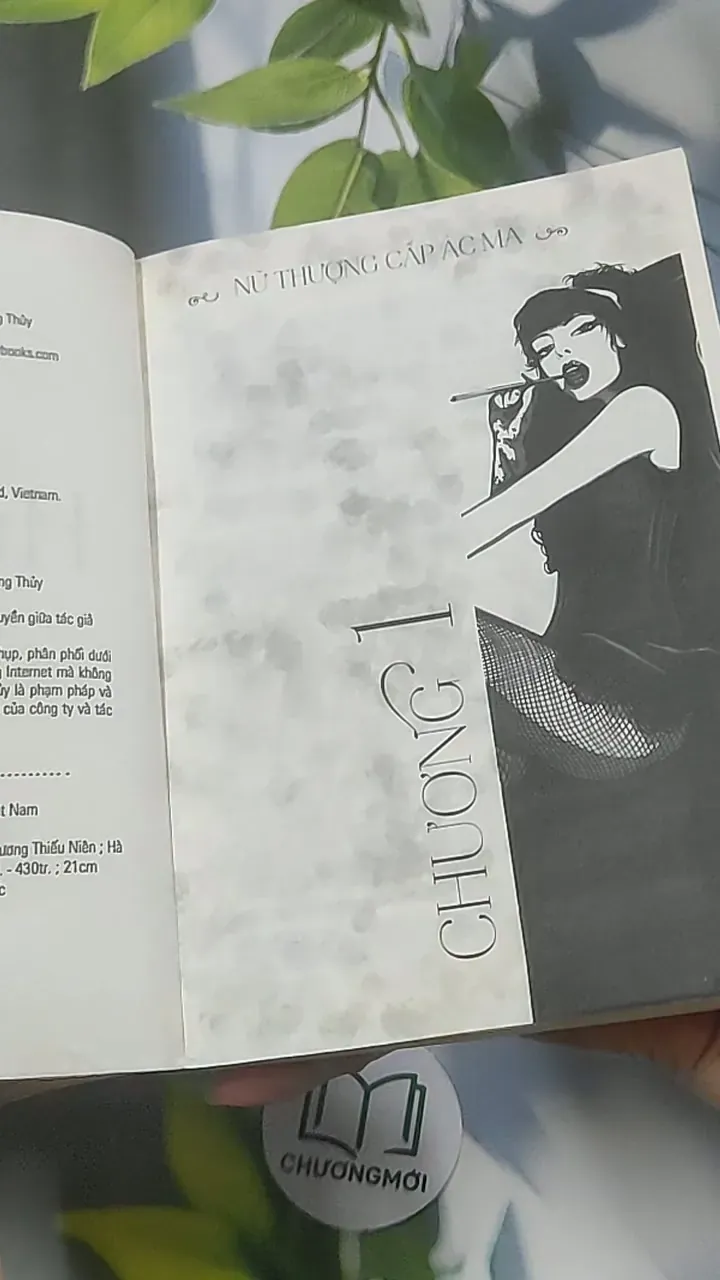 Thủy
books.com
d, Vietnam.
ng Thủy
uyển giữa tác giả
hụp, phân phối dưới
Internet mà không
ủy là phạm pháp và
của công ty và tác
t Nam
ương Thiếu Niên ; Hà
. - 430tr. ; 21cm
c
NỮ THƯỢNG CẤP ÁC MA
CHƯƠNG 1
CHƯƠNGMỚI